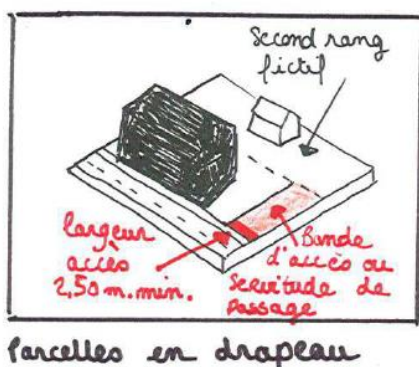 Second rang
fictif
largeur
accès
2,50 m. min.
Bande
d'accès ou
Servitude de
passage
Parcelles en drapeau